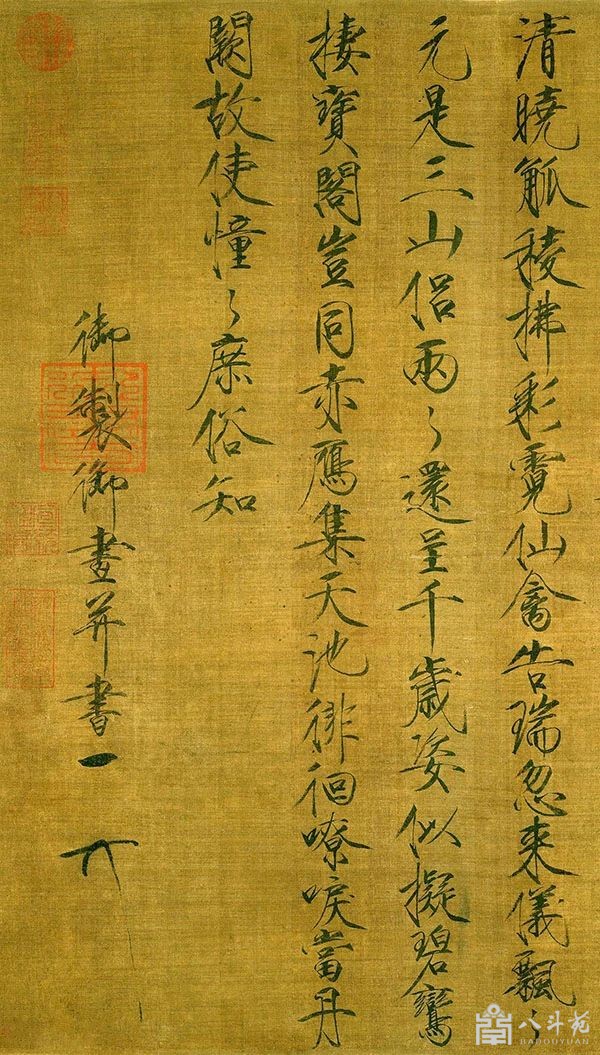 清曉觚稜拂彩霓仙禽告瑞忽来儀飄々
元是三山侶兩々還呈千歲姿似擬碧鸞
棲寶閣豈同赤鴈集天池徘徊嘹唳當丹
闕故使憧々庶俗知
御製御畫并書
八斗苑
BADOUYUAN